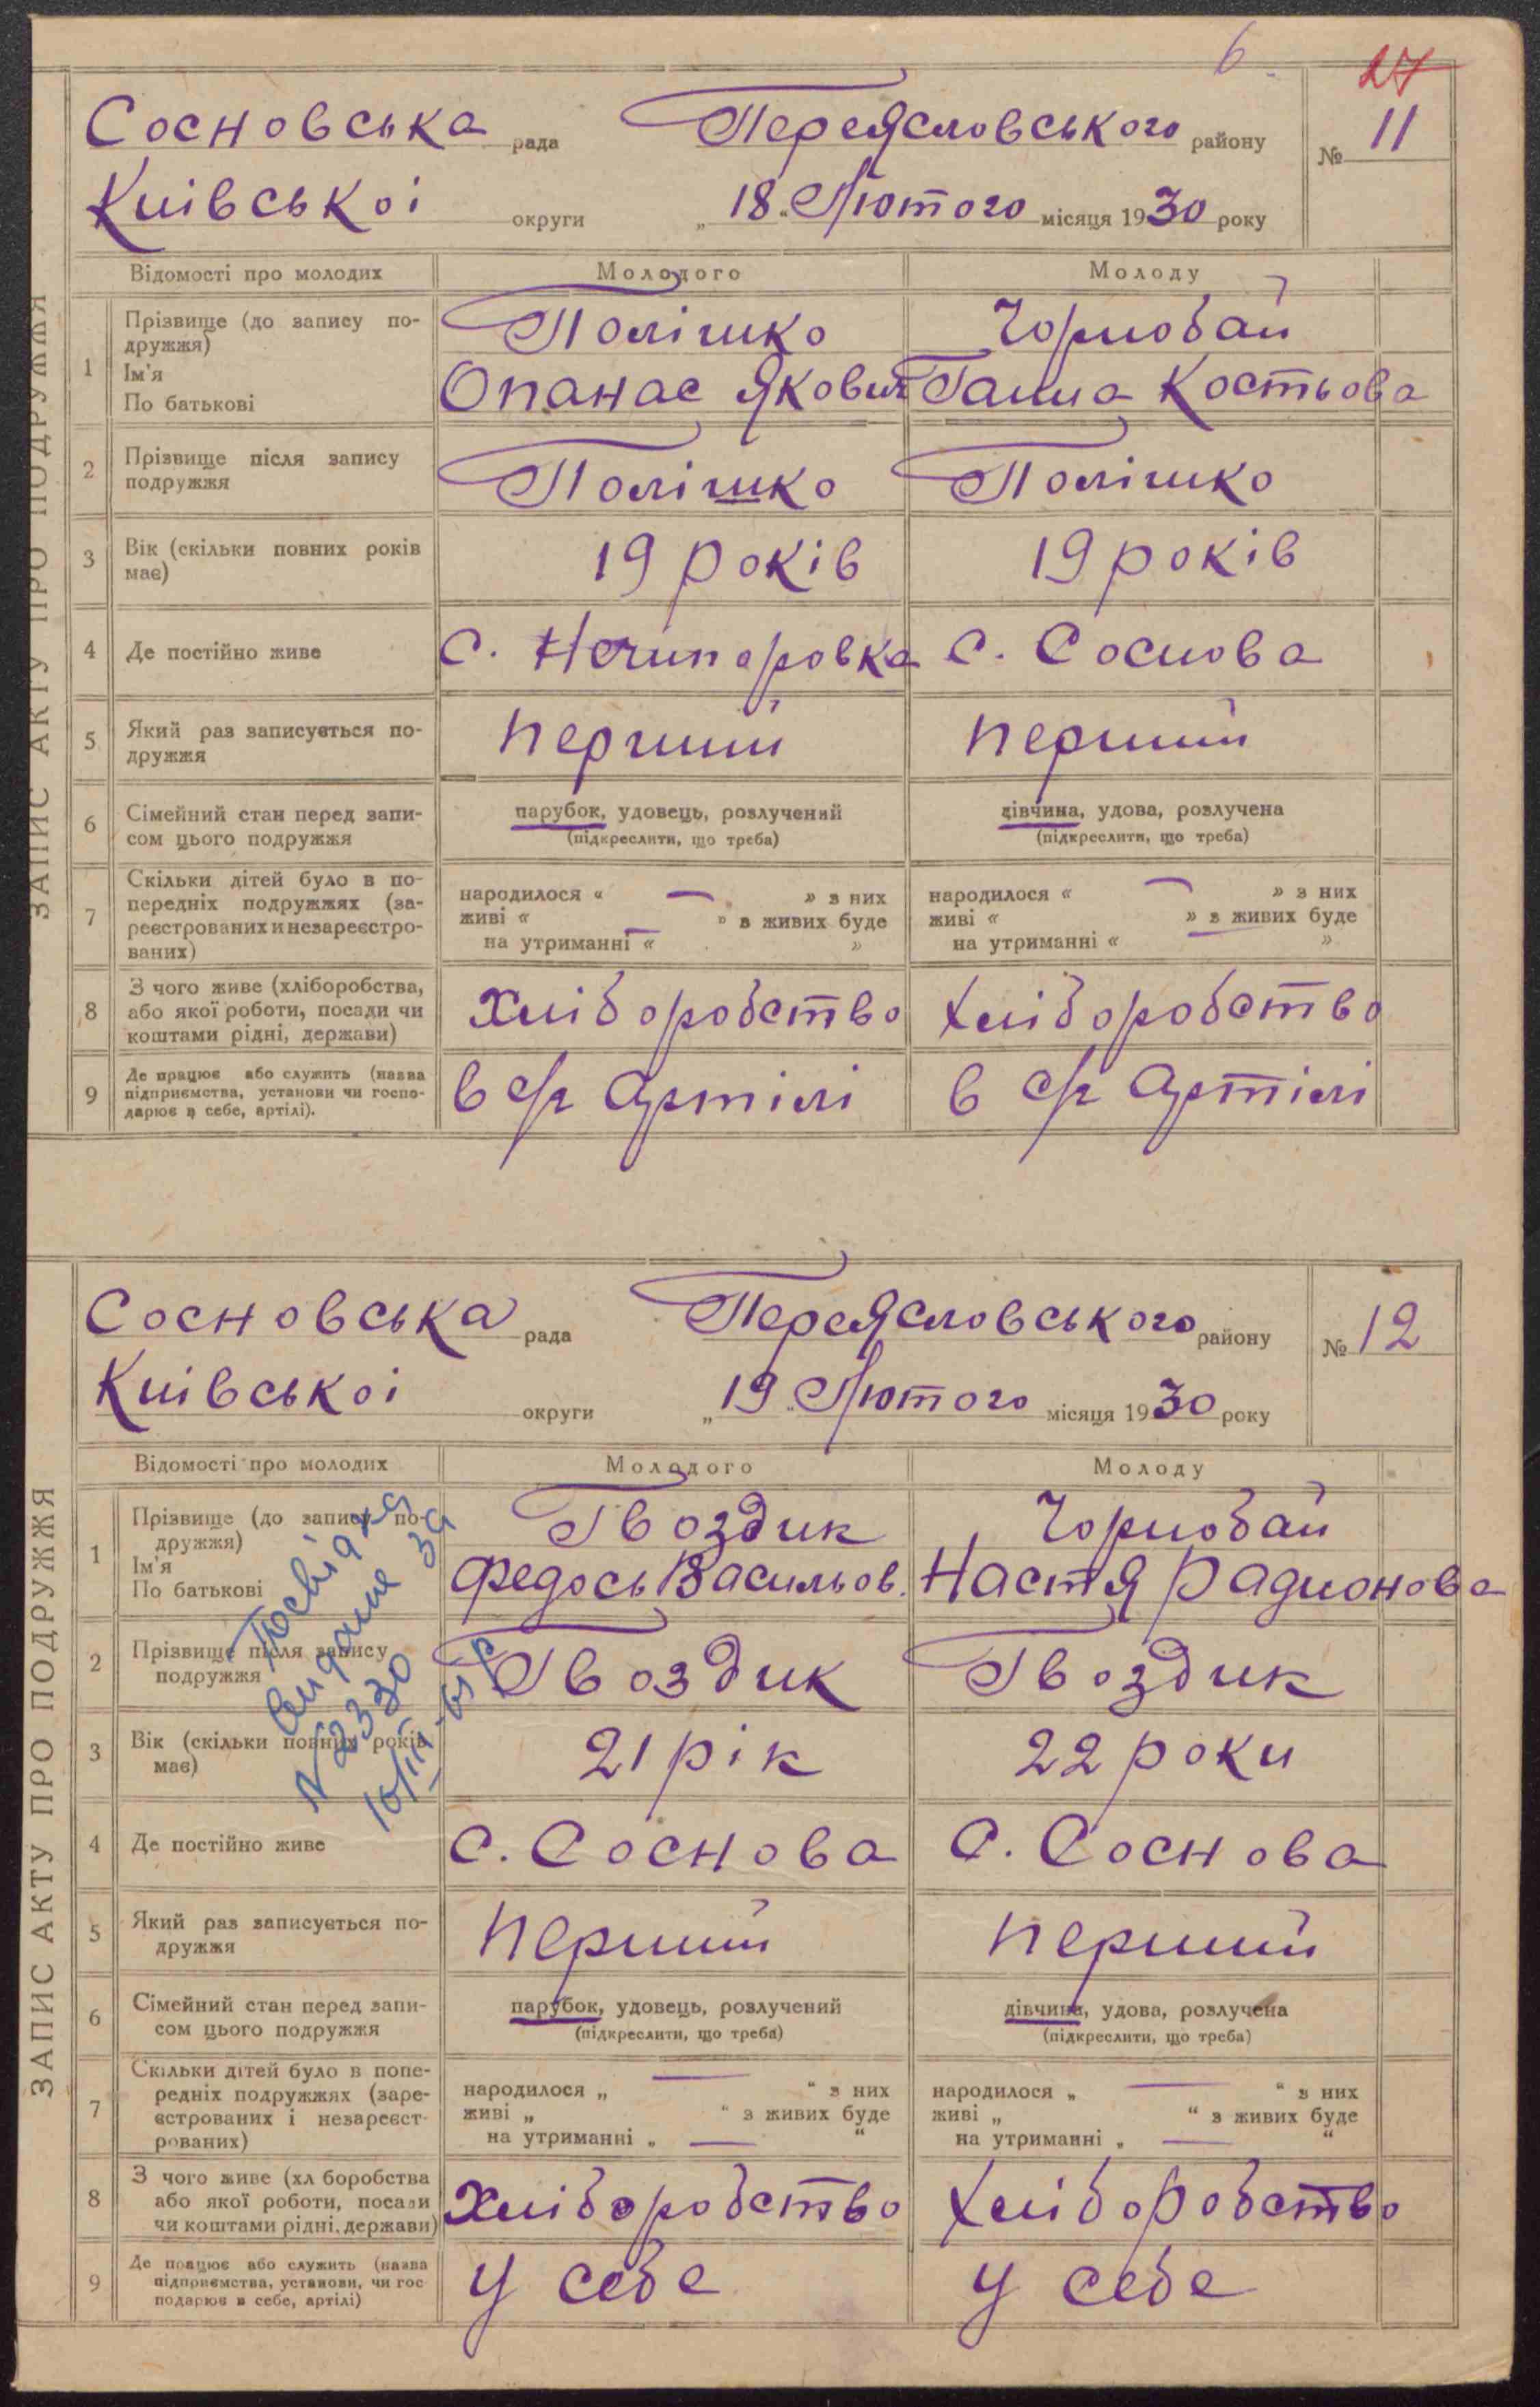 6
27
Сосновська рада Переясловського району № 11
Київської округи „ 18 “ Лютого місяця 1930 року
ЗАПИС АКТУ ПРО ПОДРУЖЖЯ
Відомості про молодих Молодого Молоду
1 Прізвище (до запису по-
дружжя)
Ім'я
По батькові
Полішко Чорнобай
Опанас Якович Ганна Костьова
2 Прізвище після запису
подружжя
Полішко Полішко
3 Вік (скільки повних років
має)
19 років 19 років
4 Де постійно живе с. Нечипоровка с. Соснова
5 Який раз записується по-
дружжя
перший перший
6 Сімейний стан перед запи-
сом цього подружжя
парубок, удовець, розлучений дівчина, удова, розлучена
(підкреслити, що треба) (підкреслити, що треба)
7 Скільки дітей було в по-
передніх подружжях (за-
реєстрованих и незареєстро-
ваних)
народилося « — » з них народилося « — » з них
живі « » в живих буде живі « » в живих буде
на утриманні « — » на утриманні « — »
8 З чого живе (хліборобства,
або якої роботи, посади чи
коштами рідні, держави)
Хліборобство Хліборобство
9 Де працює або служить (назва
підприємства, установи чи госпо-
дарює в себе, артілі).
в с/г Артілі в с/г Артілі
Сосновська рада Переясловського району № 12
Київської округи „ 19 “ Лютого місяця 1930 року
ЗАПИС АКТУ ПРО ПОДРУЖЖЯ
Відомості про молодих Молодого Молоду
1 Прізвище (до запису по-
дружжя)
Ім'я
По батькові
Гвоздик Чорнобай
Федось Васильов. Настя Радионова
2 Прізвище після запису
подружжя
Гвоздик Гвоздик
3 Вік (скільки повних років
має)
21 рік 22 роки
за
N 2330
10/III-
4 Де постійно живе с. Соснова с. Соснова
5 Який раз записується по-
дружжя
перший перший
6 Сімейний стан перед запи-
сом цього подружжя
парубок, удовець, розлучений дівчина, удова, розлучена
(підкреслити, що треба) (підкреслити, що треба)
7 Скільки дітей було в попе-
редніх подружжях (заре-
єстрованих і незареєст-
рованих)
народилося „ — “ з них народилося „ — “ з них
живі „ “ з живих буде живі „ “ з живих буде
на утриманні „ — “ на утриманні „ — “
8 З чого живе (хл боробства
або якої роботи, посади
чи коштами рідні, держави)
Хліборобство Хліборобство
9 Де працює або служить (назва
підприємства, установи, чи гос
подарює в себе, артілі)
у себе у себе